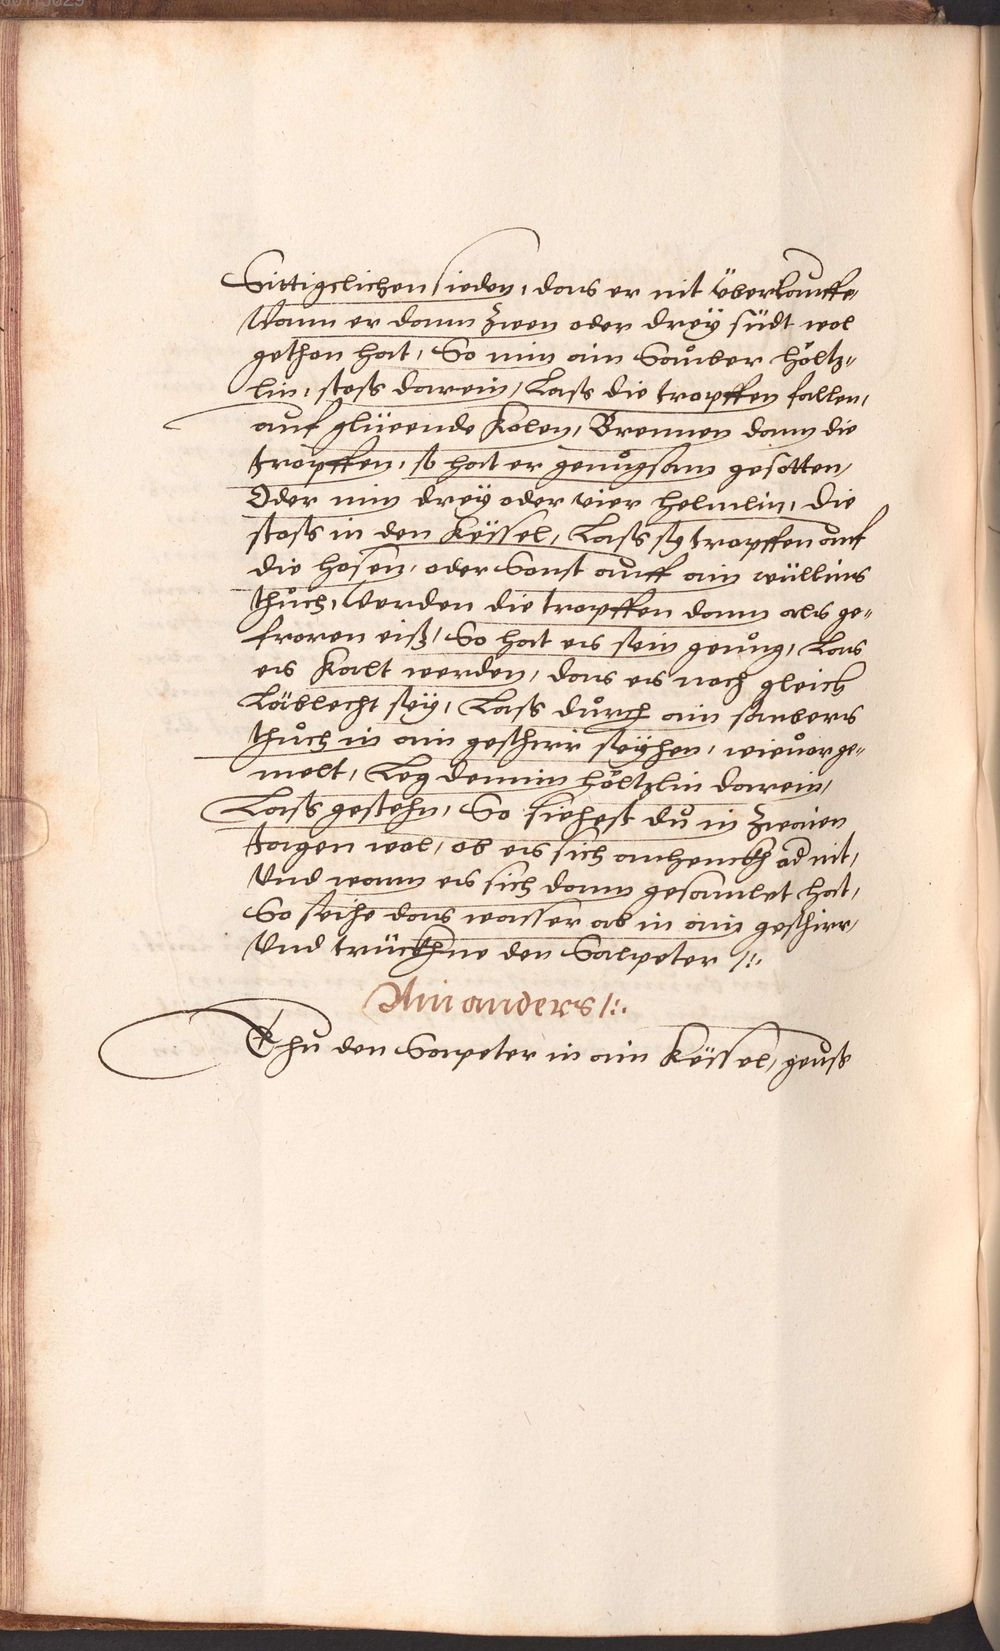 Sittigclichen sieden, das er nit überlauffe,
Wann er dann zwen oder dreÿ südt wol
gethon hat, So nim ain Saüber höltz=
lin, stoss darein, Lass die tropffen fallen,
auf glüeende Kolen, Brennen dann die
tropffen, so hat er genůgsam gesotten,
Oder nim dreÿ oder vier helmlin, die
stoss in den Kessel, Lass sÿ tropffen auf
die hosen, oder Sonst auff ain wüllins
thůch, Werden die tropffen dann als ge=
froren eiß, So hat es sein genůg, Las
es Kalt werden, das es noch gleich
Läblecht seÿ, Lass durch ain saubers
thůch in ain geschirr seÿhen, wieuorge=
melt, Leg dennin höltzlin darein,
Lass gestehn, So siehest du in zwaien
tagen wol, ob es sich anhenckh od nit,
Und wann es sich dann gesamlet hat,
So seihe das wasser ab in ain geschirr,
Und trückhne den Salpeter /:.
Ain anders /:.
Thů den Sapeter in ain Kessel, geuß